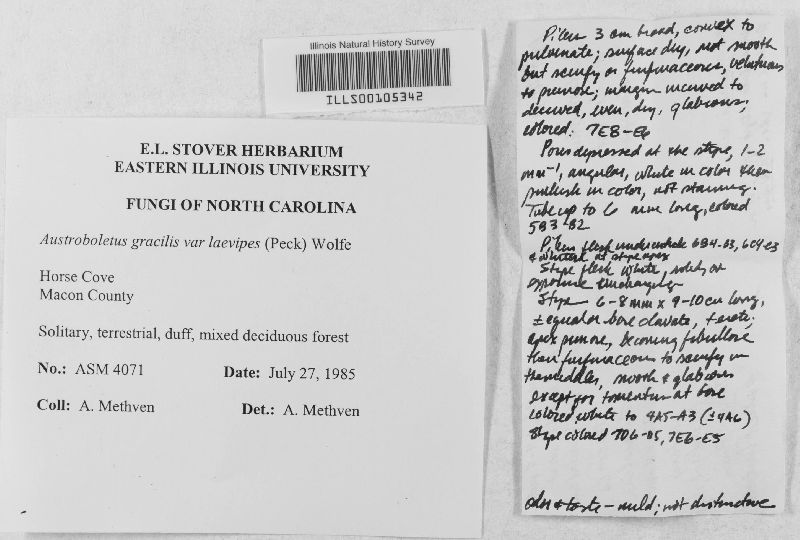 Illinois Natural History Survey
ILLS00105342
E.L. STOVER HERBARIUM
EASTERN ILLINOIS UNIVERSITY
FUNGI OF NORTH CAROLINA
Austroboletus gracilis var laevipes (Peck) Wolfe
Horse Cove
Macon County
Solitary, terrestrial, duff, mixed deciduous forest
No.: ASM 4071 Date: July 27, 1985
Coll: A. Methven Det.: A. Methven
Pileus 3 cm broad, convex to
pulvinate; surface dry, not smooth
but scurfy or furfuraceous, velutinous
to pruinose; margin incurved to
decurved, even, dry, glabrous;
colored: 7E8-E6
Pores depressed at the stipe, 1-2
mm⁻¹, angular, white in color then
pinkish in color, not staining.
Tube up to 6 mm long, colored
5B3-B2
Pileus flesh 6B4-B3, 6C4-C3
& whitish at stipe apex
Stipe flesh white, solid, on
exposure unchanging
Stipe 6-8 mm x 9-10 cm long,
± equal or base clavate, terete;
apex pruinose, becoming fibrillose
then furfuraceous to scurfy in
the middle, smooth & glabrous
except for tomentum at base
colored white to 4A5-A3 (±4A6)
Stipe colored 7D6-D5, 7E6-E5
odor & taste - mild; not distinctive